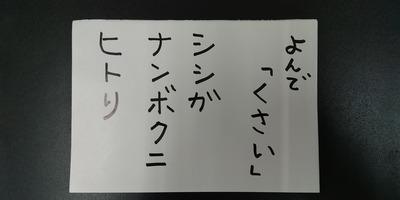 よんで
「くさい」
シシガ
ナンボクニ
ヒトリ